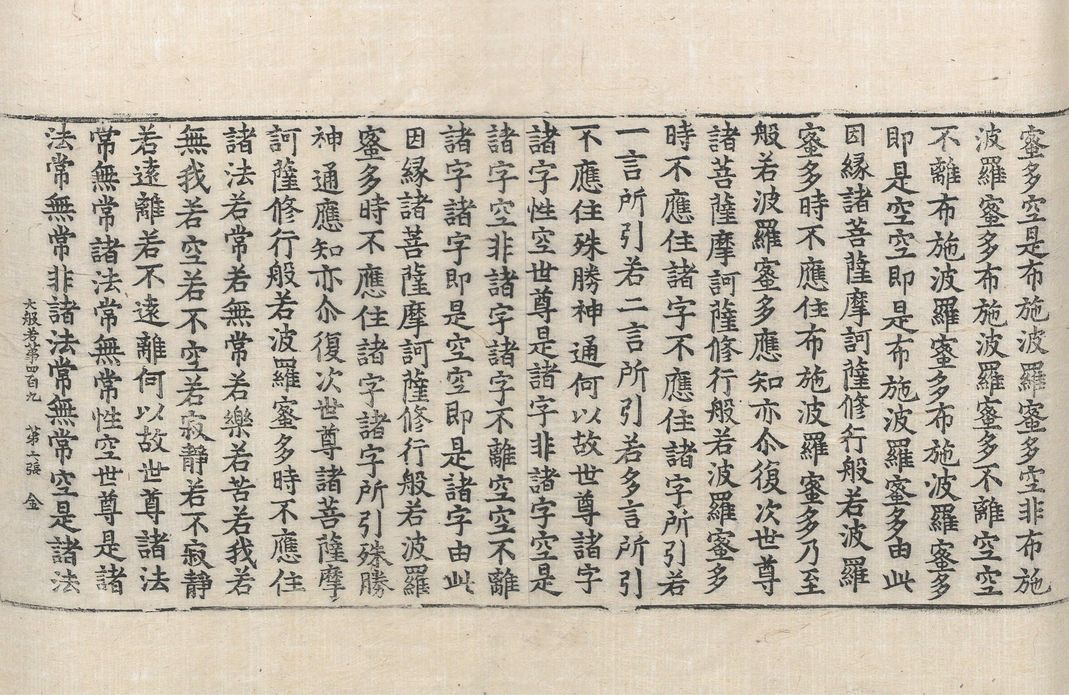 蜜多空是布施波羅蜜多空非布施
波羅蜜多布施波羅蜜多不離空空
不離布施波羅蜜多布施波羅蜜多
即是空空即是布施波羅蜜多由此
因緣諸菩薩摩訶薩修行般若波羅
蜜多時不應住布施波羅蜜多乃至
般若波羅蜜多應知亦尒復次世尊
諸菩薩摩訶薩修行般若波羅蜜多
時不應住諸字不應住諸字所引若
一言所引若二言所引若多言所引
不應住殊勝神通何以故世尊諸字
諸字性空世尊是諸字非諸字空是
諸字空非諸字諸字不離空空不離
諸字諸字即是空空即是諸字由此
因緣諸菩薩摩訶薩修行般若波羅
蜜多時不應住諸字諸字所引殊勝
神通應知亦尒復次世尊諸菩薩摩
訶薩修行般若波羅蜜多時不應住
諸法若常若無常若樂若苦若我若
無我若空若不空若寂靜若不寂靜
若遠離若不遠離何以故世尊諸法
常無常諸法常無常性空世尊是諸
法常無常非諸法常無常空是諸法
大般若第四百九 第二張 金